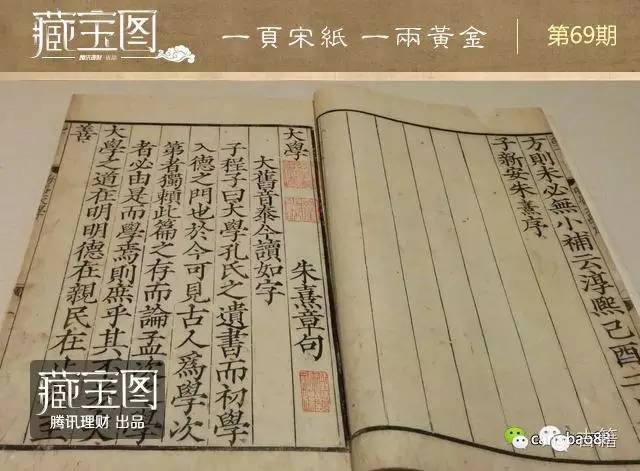 藏宝图
腾讯理财·出品
一頁宋紙 一兩黃金
第69期
方則未必無小補云淳熙己酉二
子新安朱熹序
大學
朱熹章句
大舊音泰今讀如字
子程子曰大學孔氏之遺書而初學
入德之門也於今可見古人爲學次
第者獨賴此篇之存而論孟次學
者必由是而學焉則庶乎其不
大學之道在明明德在親民在
善
藏宝图
腾讯理财 出品